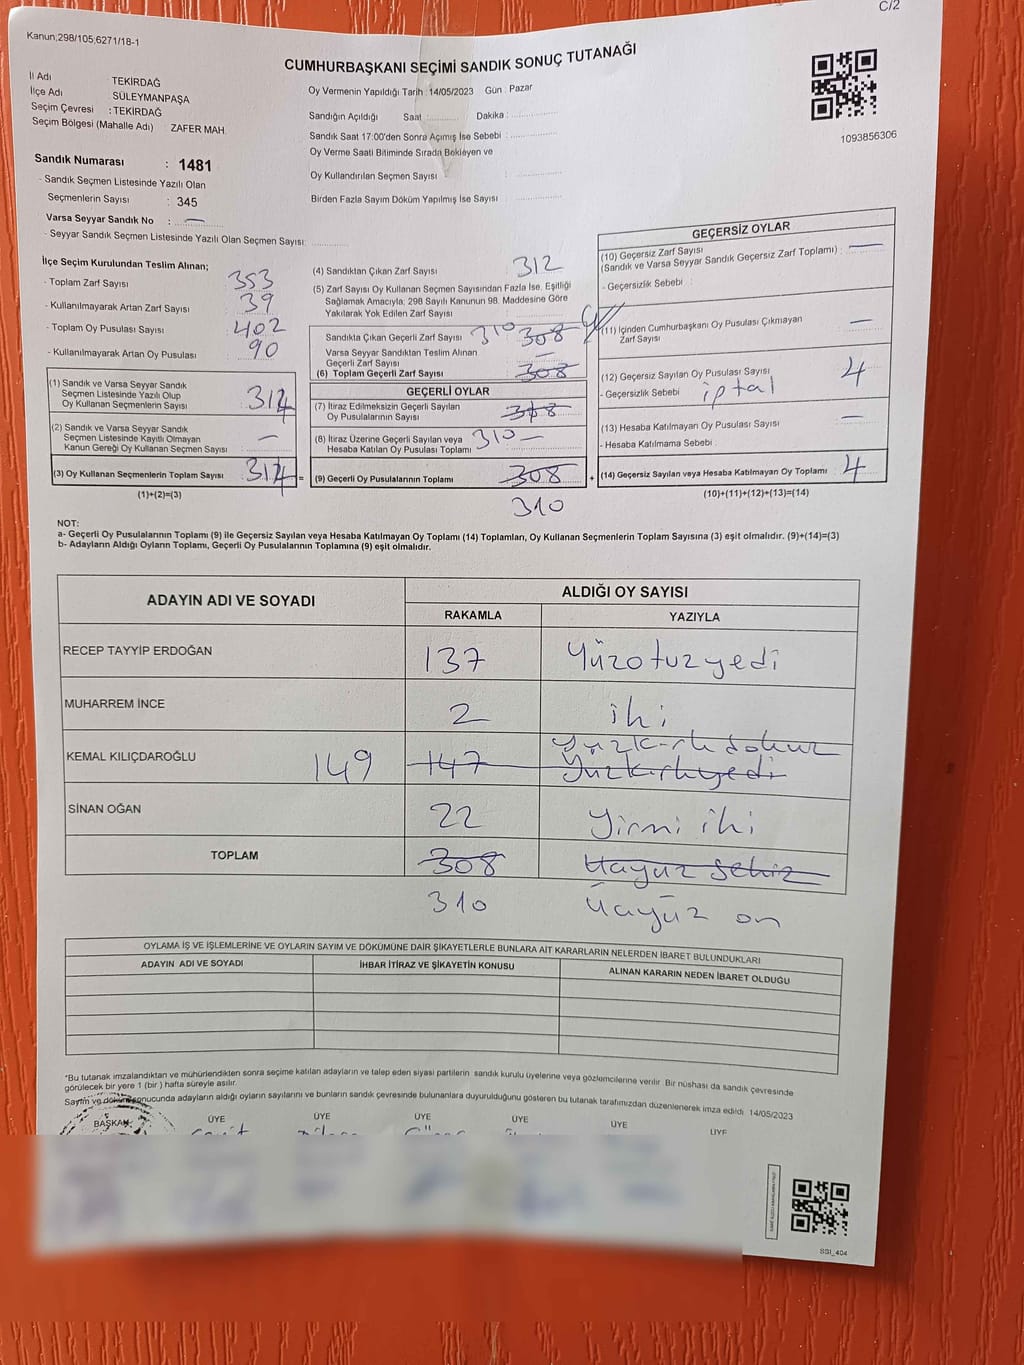 C/2
Kanun;298/105,6271/18-1
CUMHURBAŞKANI SEÇİMİ SANDIK SONUÇ TUTANAĞI
İl Adı TEKİRDAĞ
İlçe Adı : SÜLEYMANPAŞA
Seçim Çevresi : TEKİRDAĞ
Seçim Bölgesi (Mahalle Adı) ZAFER MAH.
Oy Vermenin Yapıldığı Tarih : 14/05/2023 Gün : Pazar
Sandığın Açıldığı Saat Dakika :
Sandık Saat 17:00'den Sonra Açımış İse Sebebi :
Oy Verme Saati Bitiminde Sırada Bekleyen ve
Oy Kullandırılan Seçmen Sayısı :
Birden Fazla Sayım Döküm Yapılmış İse Sayısı
1093856306
Sandık Numarası : 1481
- Sandık Seçmen Listesinde Yazılı Olan
Seçmenlerin Sayısı : 345
Varsa Seyyar Sandık No : —
- Seyyar Sandık Seçmen Listesinde Yazılı Olan Seçmen Sayısı:
İlçe Seçim Kurulundan Teslim Alınan;
- Toplam Zarf Sayısı 353
- Kullanılmayarak Artan Zarf Sayısı 39
- Toplam Oy Pusulası Sayısı 402
- Kullanılmayarak Artan Oy Pusulası 90
(1) Sandık ve Varsa Seyyar Sandık
Seçmen Listesinde Yazılı Olup
Oy Kullanan Seçmenlerin Sayısı
(2) Sandık ve Varsa Seyyar Sandık
Seçmen Listesinde Kayıtlı Olmayan
Kanun Gereği Oy Kullanan Seçmen Sayısı —
(3) Oy Kullanan Seçmenlerin Toplam Sayısı
(1)+(2)=(3)
(4) Sandıktan Çıkan Zarf Sayısı 312
(5) Zarf Sayısı Oy Kullanan Seçmen Sayısından Fazla İse, Eşitliği
Sağlamak Amacıyla, 298 Sayılı Kanunun 98. Maddesine Göre
Yakılarak Yok Edilen Zarf Sayısı :
Sandıkta Çıkan Geçerli Zarf Sayısı 310 308
Varsa Seyyar Sandıktan Teslim Alınan
Geçerli Zarf Sayısı —
(6) Toplam Geçerli Zarf Sayısı 308
GEÇERLİ OYLAR
(7) İtiraz Edilmeksizin Geçerli Sayılan
Oy Pusulalarının Sayısı 308
(8) İtiraz Üzerine Geçerli Sayılan veya
Hesaba Katılan Oy Pusulası Toplamı 310 —
(9) Geçerli Oy Pusulalarının Toplamı 308
310
GEÇERSİZ OYLAR
(10) Geçersiz Zarf Sayısı
(Sandık ve Varsa Seyyar Sandık Geçersiz Zarf Toplamı) : —
- Geçersizlik Sebebi :
(11) İçinden Cumhurbaşkanı Oy Pusulası Çıkmayan
Zarf Sayısı —
(12) Geçersiz Sayılan Oy Pusulası Sayısı 4
- Geçersizlik Sebebi iptal
(13) Hesaba Katılmayan Oy Pusulası Sayısı —
- Hesaba Katılmama Sebebi :
(14) Geçersiz Sayılan veya Hesaba Katılmayan Oy Toplamı 4
(10)+(11)+(12)+(13)=(14)
NOT:
a- Geçerli Oy Pusulalarının Toplamı (9) ile Geçersiz Sayılan veya Hesaba Katılmayan Oy Toplamı (14) Toplamları, Oy Kullanan Seçmenlerin Toplam Sayısına (3) eşit olmalıdır. (9)+(14)=(3)
b- Adayların Aldığı Oyların Toplamı, Geçerli Oy Pusulalarının Toplamına (9) eşit olmalıdır.
ADAYIN ADI VE SOYADI
ALDIĞI OY SAYISI
RAKAMLA YAZIYLA
RECEP TAYYİP ERDOĞAN 137 Yüzotuzyedi
MUHARREM İNCE 2 iki
Yüzkırkdokuz
KEMAL KILIÇDAROĞLU 149 147 Yüzkırkyedi
SİNAN OĞAN 22 Yirmi iki
TOPLAM 308 Üçyüz Sekiz
310 Üçyüz on
OYLAMA İŞ VE İŞLEMLERİNE VE OYLARIN SAYIM VE DÖKÜMÜNE DAİR ŞİKAYETLERLE BUNLARA AİT KARARLARIN NELERDEN İBARET BULUNDUKLARI
ADAYIN ADI VE SOYADI İHBAR İTİRAZ VE ŞİKAYETİN KONUSU ALINAN KARARIN NEDEN İBARET OLDUĞU
*Bu tutanak imzalandıktan ve mühürlendikten sonra seçime katılan adayların ve talep eden siyasi partilerin sandık kurulu üyelerine veya gözlemcilerine verilir. Bir nüshası da sandık çevresinde
görülecek bir yere 1 (bir) hafta süreyle asılır.
Sayım ve döküm sonucunda adayların aldığı oyların sayılarını ve bunların sandık çevresinde bulunanlara duyurulduğunu gösteren bu tutanak tarafımızdan düzenlenerek imza edildi. 14/05/2023
BAŞKAN ÜYE ÜYE ÜYE ÜYE ÜYE ÜYE
SSI_404